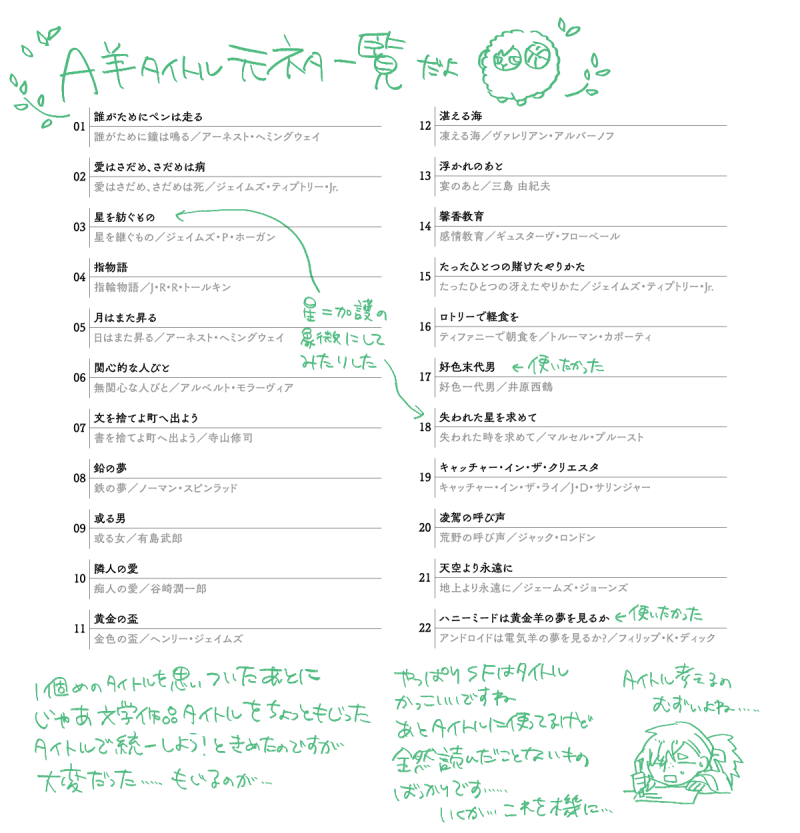 A羊タイトル元ネタ一覧だよ
01
誰がためにペンは走る
誰がために鐘は鳴る／アーネスト・ヘミングウェイ
02
愛はさだめ、さだめは病
愛はさだめ、さだめは死／ジェイムズ・ティプトリー・Jr.
03
星を紡ぐもの
星を継ぐもの／ジェイムズ・P・ホーガン
04
指物語
指輪物語／J・R・R・トールキン
05
月はまた昇る
日はまた昇る／アーネスト・ヘミングウェイ
06
関心的な人びと
無関心な人びと／アルベルト・モラーヴィア
07
文を捨てよ町へ出よう
書を捨てよ町へ出よう／寺山修司
08
鉛の夢
鉄の夢／ノーマン・スピンラッド
09
或る男
或る女／有島武郎
10
隣人の愛
痴人の愛／谷崎潤一郎
11
黄金の盃
金色の盃／ヘンリー・ジェイムズ
星＝加護の
象徴にして
みたりした
12
湛える海
凍える海／ヴァレリアン・アルバーノフ
13
浮かれのあと
宴のあと／三島 由紀夫
14
馨香教育
感情教育／ギュスターヴ・フローベール
15
たったひとつの賭けたやりかた
たったひとつの冴えたやりかた／ジェイムズ・ティプトリー・Jr.
16
ロトリーで軽食を
ティファニーで朝食を／トルーマン・カポーティ
17
好色末代男 ←使いたかった
好色一代男／井原西鶴
18
失われた星を求めて
失われた時を求めて／マルセル・プルースト
19
キャッチャー・イン・ザ・クリエスタ
キャッチャー・イン・ザ・ライ／J・D・サリンジャー
20
凌駕の呼び声
荒野の呼び声／ジャック・ロンドン
21
天空より永遠に
地上より永遠に／ジェームズ・ジョーンズ
22
ハニーミードは黄金羊の夢を見るか ←使いたかった
アンドロイドは電気羊の夢を見るか?／フィリップ・K・ディック
1個めのタイトルを思いついたあとに
じゃあ文学作品タイトルをちょっともじった
タイトルで統一しよう！ときめたのですが
大変だった……もじるのが…
やっぱりSFはタイトル
かっこいいですね
あとタイトルに使ってるけど
全然読んだことないもの
ばっかりです……
いくか…これを機に…
タイトル考えるの
むずいよね……